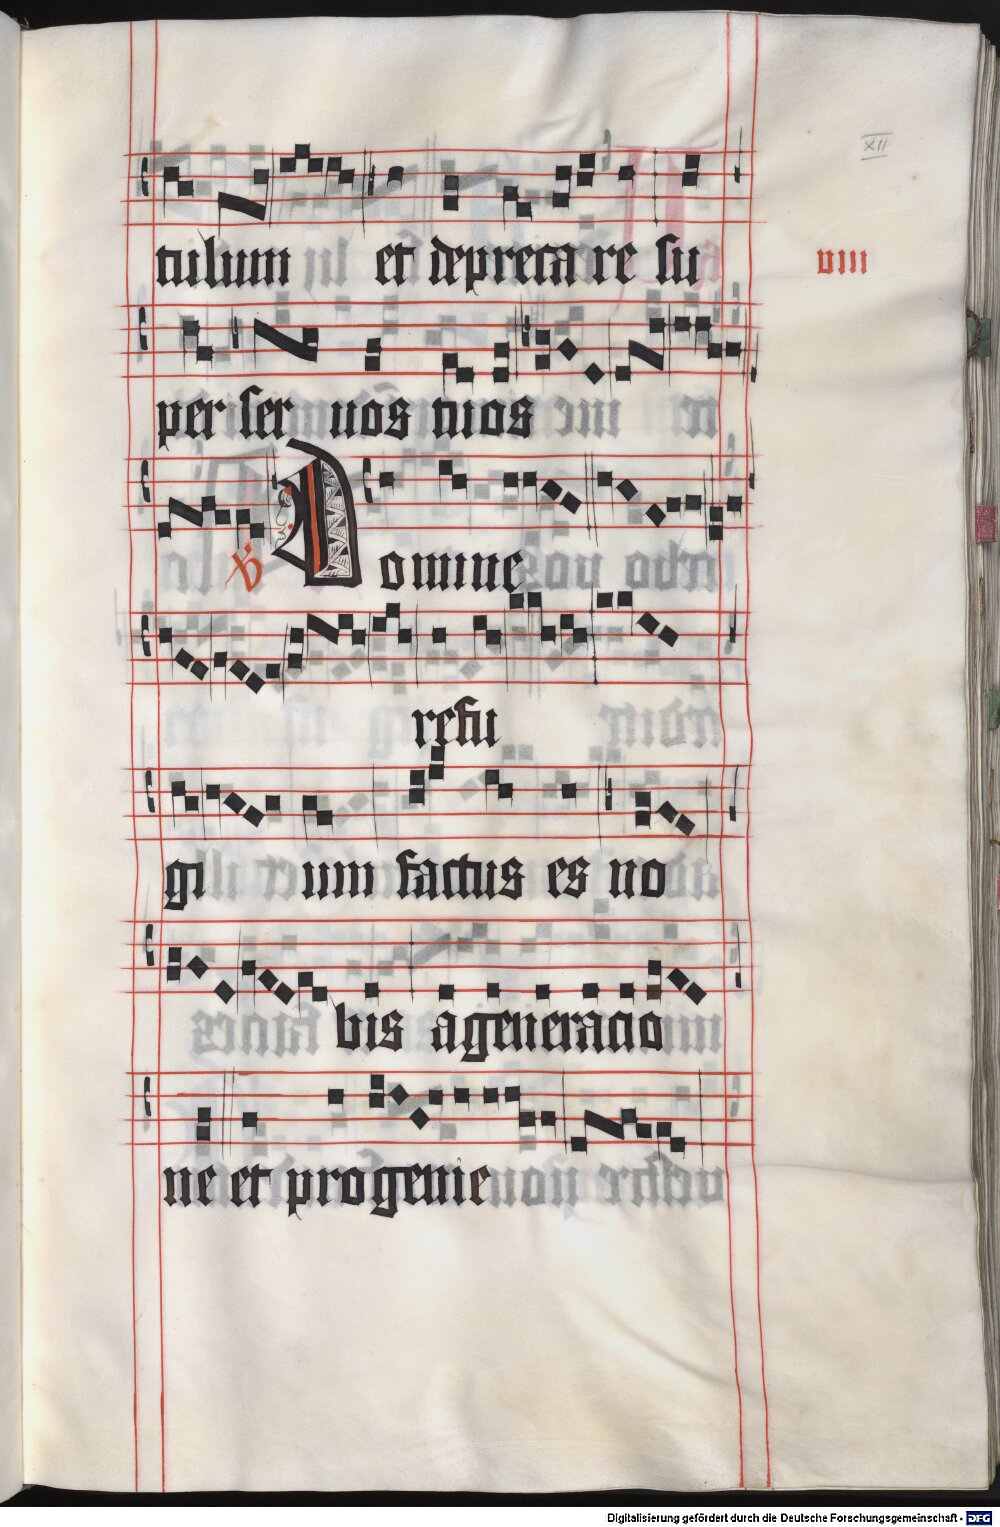 XII
tulum et depreca re su
viii
per ser uos tuos
V Domine
refu
gi um factus es no
bis a generacio
ne et progenie
Digitalisierung gefördert durch die Deutsche Forschungsgemeinschaft - DFG